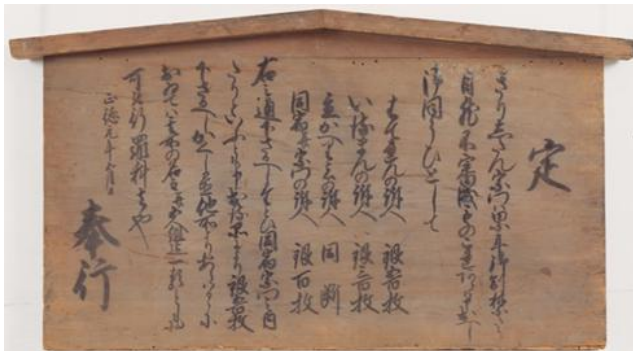 定
きりしたん宗門は累年御制禁たり
自然不審成もの有之は申出へし
御ほうひとして
はてれんの訴人 銀五百枚
いるまんの訴人 銀三百枚
立かへり者の訴人 同断
同宿并宗門の訴人 銀百枚
右之通下さるへしたとひ同宿宗門の内
たりといふとも申出る品により銀五百枚
下さるへしかくし置他所よりあらはるゝに
おゐてハ其所の名主并五人組迄一類ともに
可被行罪科者也
正徳元年五月日
奉行